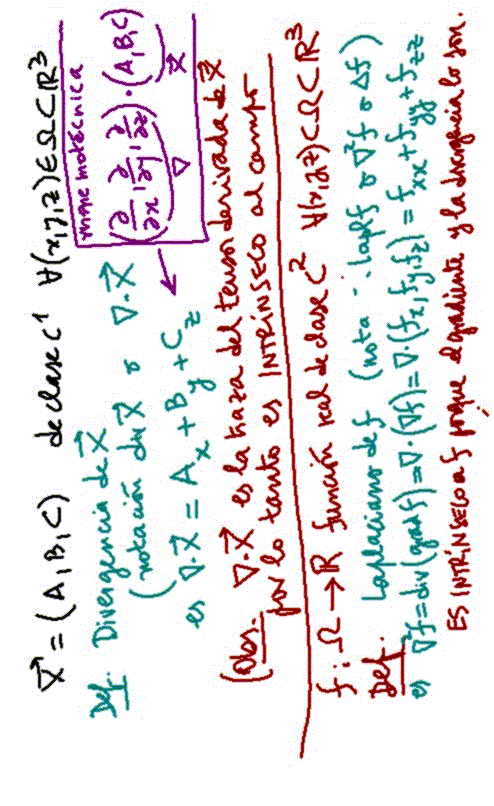 X⃗ = (A,B,C) de clase C¹ ∀(x,y,z)∈Ω⊂ℝ³
Def. Divergencia de X⃗
(notación div X⃗ o ∇·X⃗
es ∇·X⃗ = Aₓ + B_y + C_z
mnemotécnica
(∂/∂x, ∂/∂y, ∂/∂z)·(A,B,C)
∇ X⃗
(Obs. ∇·X⃗ es la traza del tensor derivada de X⃗
por lo tanto es INTRÍNSECO al campo
f: Ω → ℝ función real de clase C² ∀(x,y,z)⊂Ω⊂ℝ³
Def. Laplaciano de f (nota·: lapl f o ∇²f o Δf)
es ∇²f = div(grad f) = ∇·(∇f) = ∇·(fₓ, f_y, f_z) = fₓₓ + f_yy + f_zz
ES INTRÍNSECO a f porque el gradiente y la divergencia lo son.